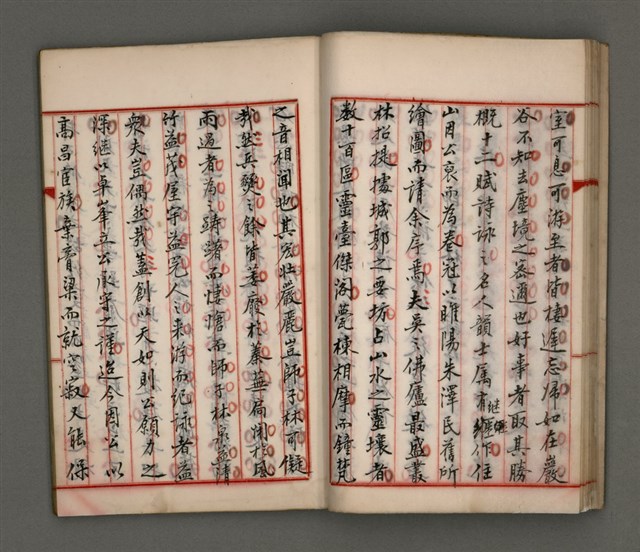 室可息可游至者皆棲遲忘歸如在巖
谷不知去塵境之密邇也好事者取其勝
概十二賦詩詠之名人韻士属有継作住
山因公裒而為卷冠以睢陽朱澤民舊所
繪圖而請余序焉夫吳之佛廬最盛叢
林招提據城郭之要坊占山水之靈壤者
数十百區靈臺傑閣甍棟相摩而鐘梵
之音相聞也其宏壮嚴麗豈師子林可儗
哉然兵燹之餘皆萎廢於蓁蕪扃閉於風
雨過者為之躊躇而悽愴而師子林泉益清
竹益茂屋宇益完人之来游而纪詠者益
衆夫豈偶然哉蓋創以天如則公願力之
深继以卓峯立公承守之謹迨今因公以
高昌宦族棄膏粱而就空寂又能保